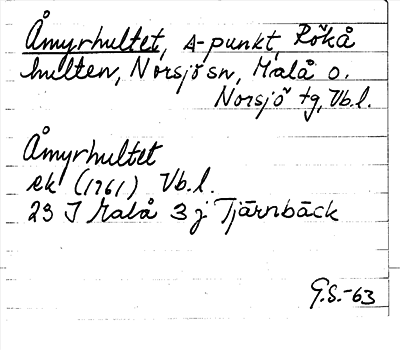 Åmyrhultet, A-punkt, Rökå
hulten, Norsjö sn, Malå o.
Norsjö tg, Vb.l.
Åmyrhultet
ek (1961) Vb.l.
23 J Malå 3 j Tjärnbäck
G.S.-63